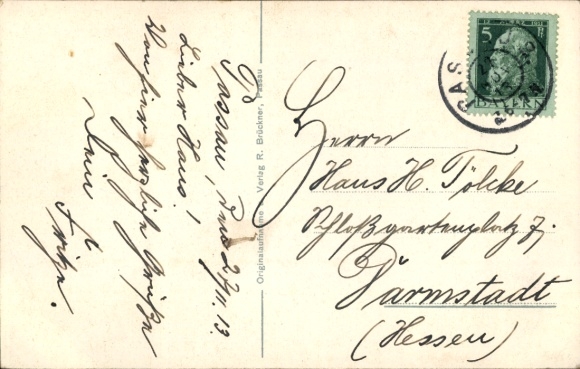 Passau, den 27/11. 13.
Lieber Hans!
Von hier herzliche Grüße
Dein
Fritze.
Originalaufnahme u. Verlag R. Brückner, Passau
5
BAYERN
PAS
Herrn
Hans H. Tölcke
Schloßgartenplatz 7.
Darmstadt
(Hessen)